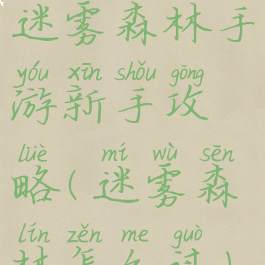 迷雾森林手
yóu xīn shǒu gōng
游新手攻
lüè mí wù sēn
略(迷雾森
lín zěn me guò
林怎么过)